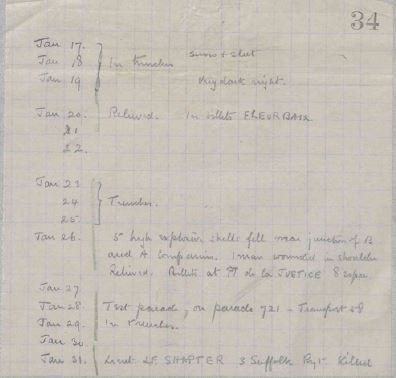 34
Jan 17.
Jan 18 In trenches snow & sleet
Jan 19 Very dark night.
Jan 20. Relieved. In billets FLEURBAIX
21
22.
Jan 23
24 Trenches.
25.
Jan 26. 5 high explosive shells fell near junction of B
and A Companies. 1 man wounded in shoulder
Relieved. Billets at Pt de la JUSTICE 8
Jan 27
Jan 28. Test parade, on parade 721 - Transport 58
Jan 29. In trenches.
Jan 30
Jan 31. Lieut SHAPTER 3 Suffolk Regt Killed